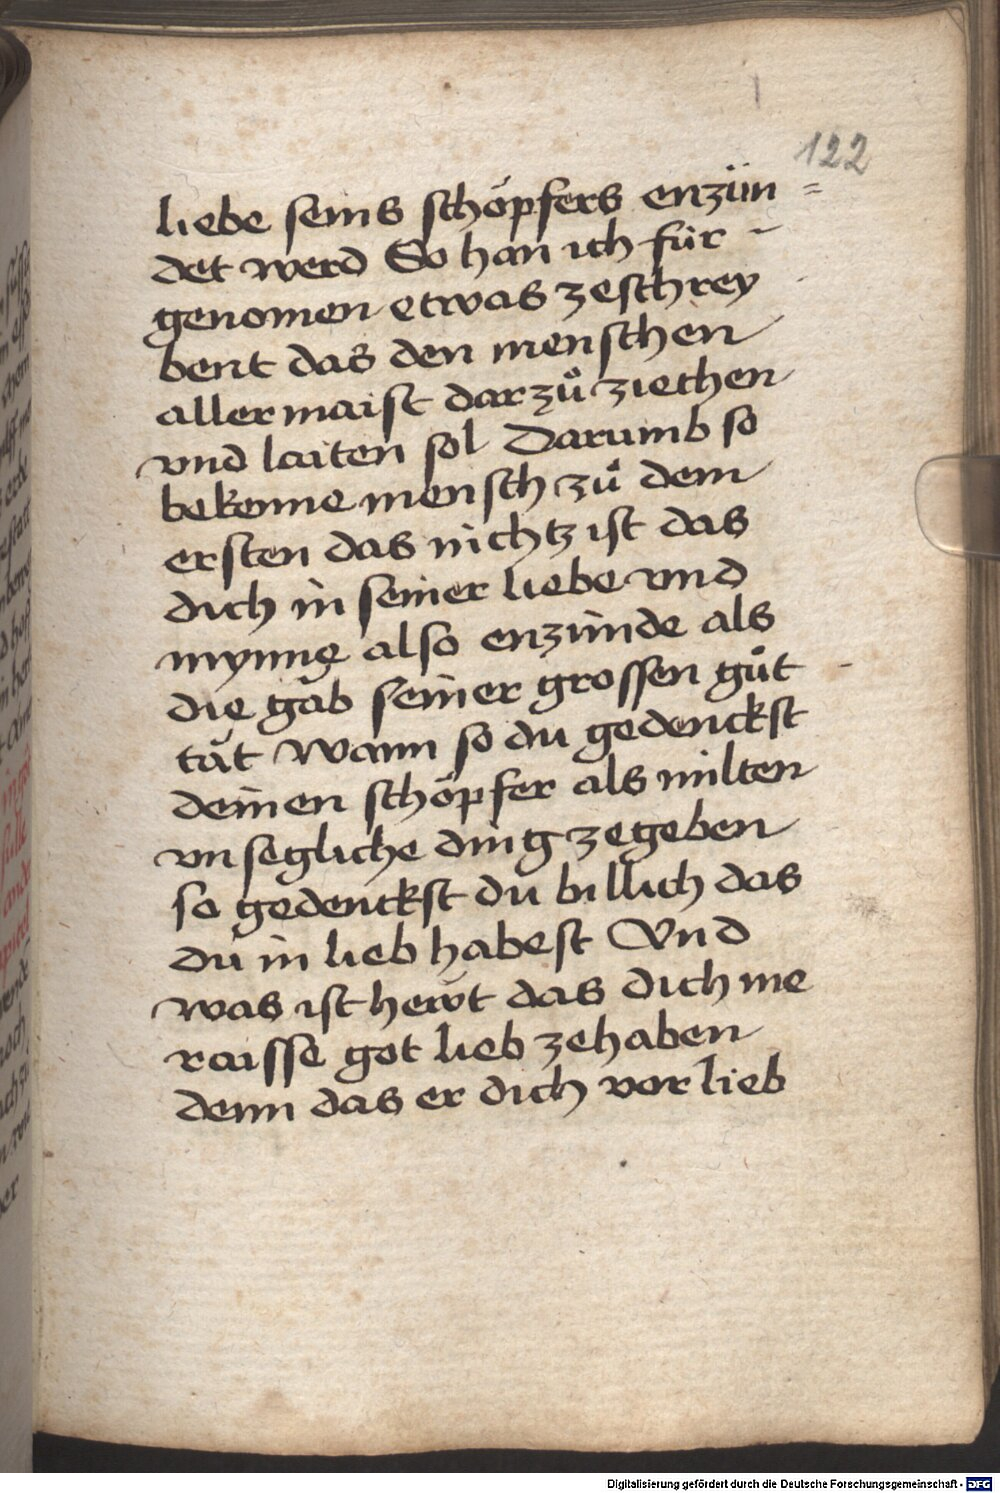 122
liebe seins schöpfers enzün=
det werd So han ich für-
genomen etwas zeschrey
bent das den menschen
aller maist darzů ziechen
vnd laiten sol Darumb so
bekenne mensch zů dem
ersten das nichtz ist das
dich in seiner liebe vnd
mynne also enzünde als
die gab seiner grossen gůt-
tät Wann so du gedenckst
deinen schöpfer als milten
vnsegliche ding zegeben
so gedenckst du billich das
du in lieb habest Vnd
was ist hewt das dich me
raisse got lieb zehaben
denn das er dich vor lieb
Digitalisierung gefördert durch die Deutsche Forschungsgemeinschaft - DFG